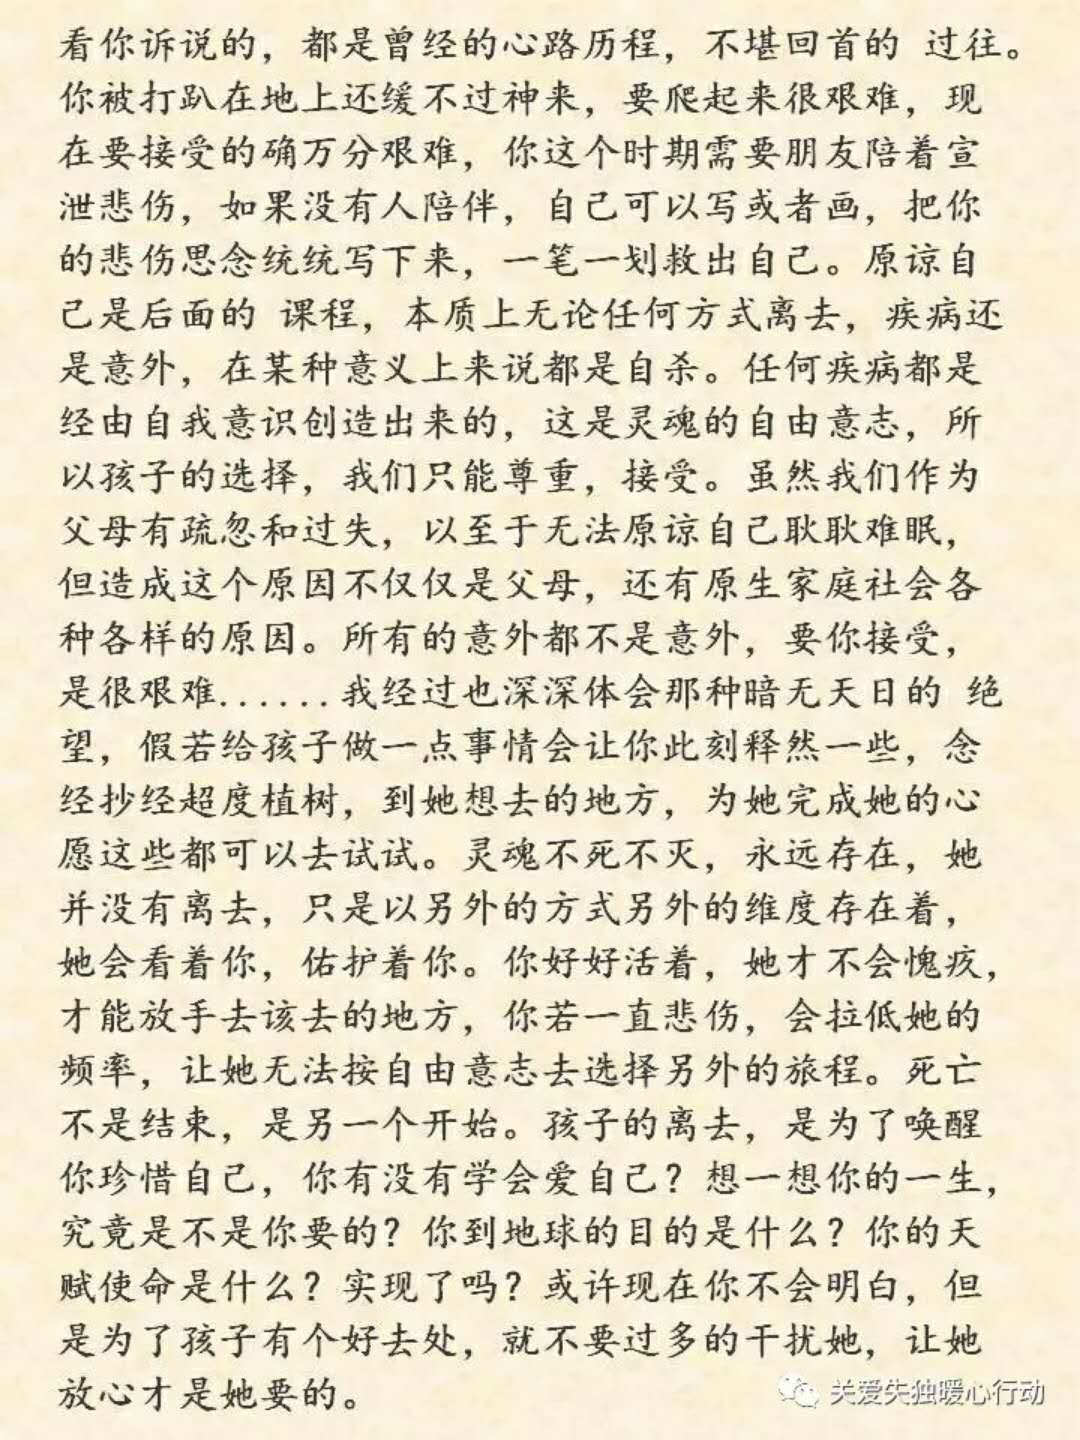 看你诉说的，都是曾经的心路历程，不堪回首的 过往。
你被打趴在地上还缓不过神来，要爬起来很艰难，现
在要接受的确万分艰难，你这个时期需要朋友陪着宣
泄悲伤，如果没有人陪伴，自己可以写或者画，把你
的悲伤思念统统写下来，一笔一划救出自己。原谅自
己是后面的 课程，本质上无论任何方式离去，疾病还
是意外，在某种意义上来说都是自杀。任何疾病都是
经由自我意识创造出来的，这是灵魂的自由意志，所
以孩子的选择，我们只能尊重，接受。虽然我们作为
父母有疏忽和过失，以至于无法原谅自己耿耿难眠，
但造成这个原因不仅仅是父母，还有原生家庭社会各
种各样的原因。所有的意外都不是意外，要你接受，
是很艰难......我经过也深深体会那种暗无天日的 绝
望，假若给孩子做一点事情会让你此刻释然一些，念
经抄经超度植树，到她想去的地方，为她完成她的心
愿这些都可以去试试。灵魂不死不灭，永远存在，她
并没有离去，只是以另外的方式另外的维度存在着，
她会看着你，佑护着你。你好好活着，她才不会愧疚，
才能放手去该去的地方，你若一直悲伤，会拉低她的
频率，让她无法按自由意志去选择另外的旅程。死亡
不是结束，是另一个开始。孩子的离去，是为了唤醒
你珍惜自己，你有没有学会爱自己？想一想你的一生，
究竟是不是你要的？你到地球的目的是什么？你的天
赋使命是什么？实现了吗？或许现在你不会明白，但
是为了孩子有个好去处，就不要过多的干扰她，让她
放心才是她要的。
关爱失独暖心行动